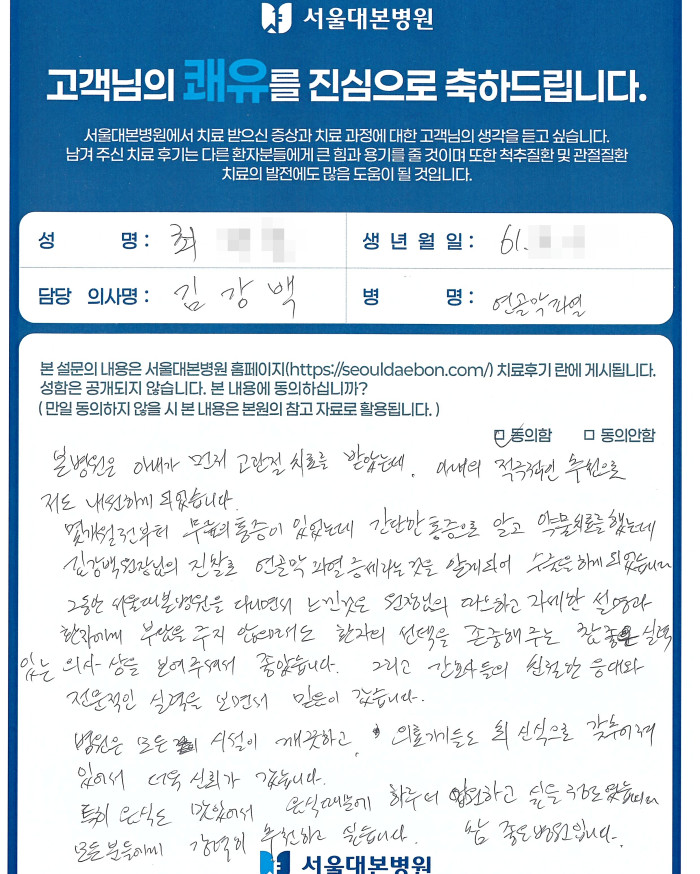 서울대본병원
고객님의 쾌유를 진심으로 축하드립니다.
서울대본병원에서 치료 받으신 증상과 치료 과정에 대한 고객님의 생각을 듣고 싶습니다.
남겨 주신 치료 후기는 다른 환자분들에게 큰 힘과 용기를 줄 것이며 또한 척추질환 및 관절질환
치료의 발전에도 많음 도움이 될 것입니다.
성 명 : 최
생 년 월 일 : 61.
담당 의사명 : 김강백
병 명 : 연골막파열
본 설문의 내용은 서울대본병원 홈페이지(https://seouldaebon.com/) 치료후기 란에 게시됩니다.
성함은 공개되지 않습니다. 본 내용에 동의하십니까?
( 만일 동의하지 않을 시 본 내용은 본원의 참고 자료로 활용됩니다. )
동의함 동의안함
본병원은 아내가 먼저 고관절 치료를 받았는데, 아내의 적극적인 추천으로
저도 내원하게 되었습니다.
몇개월전부터 무릎의 통증이 있었는데 간단한 통증으로 알고 약물치료를 했는데
김강백원장님의 진찰로 연골막 파열 증세라는것을 알게되어 수술을 하게 되었습니다
그동안 서울대본병원을 다니면서 느낀것은 원장님의 따스하고 자세한 설명과
환자에게 부담을 주지 않으면서도 환자의 선택을 존중해주는 참 좋은 실력
있는 의사 상을 보여주셔서 좋았습니다. 그리고 간호사들의 친절한 응대와
전문적인 실력을 보면서 믿음이 갔습니다.
병원은 모든 시설이 깨끗하고, 의료기기들도 최 신식으로 갖추어져
있어서 더욱 신뢰가 갔습니다.
특히 음식도 맛있어서 음식때문에 하루더 입원하고 싶을 정도였습니다
모든분들에게 강력히 추천하고 싶습니다. 참 좋은병원입니다.
서울대본병원